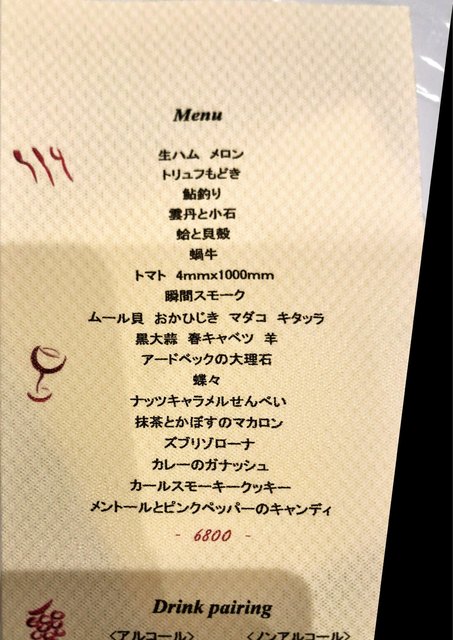 Menu
生ハム メロン
トリュフもどき
鮎釣り
雲丹と小石
蛤と貝殻
蝸牛
トマト 4mmx1000mm
瞬間スモーク
ムール貝 おかひじき マダコ キタッラ
黒大蒜 春キャベツ 羊
アードベックの大理石
蝶々
ナッツキャラメルせんべい
抹茶とかぼすのマカロン
ズブリゾローナ
カレーのガナッシュ
カールスモーキークッキー
メントールとピンクペッパーのキャンディ
- 6800 -
Drink pairing
<アルコール> <ノンアルコール>